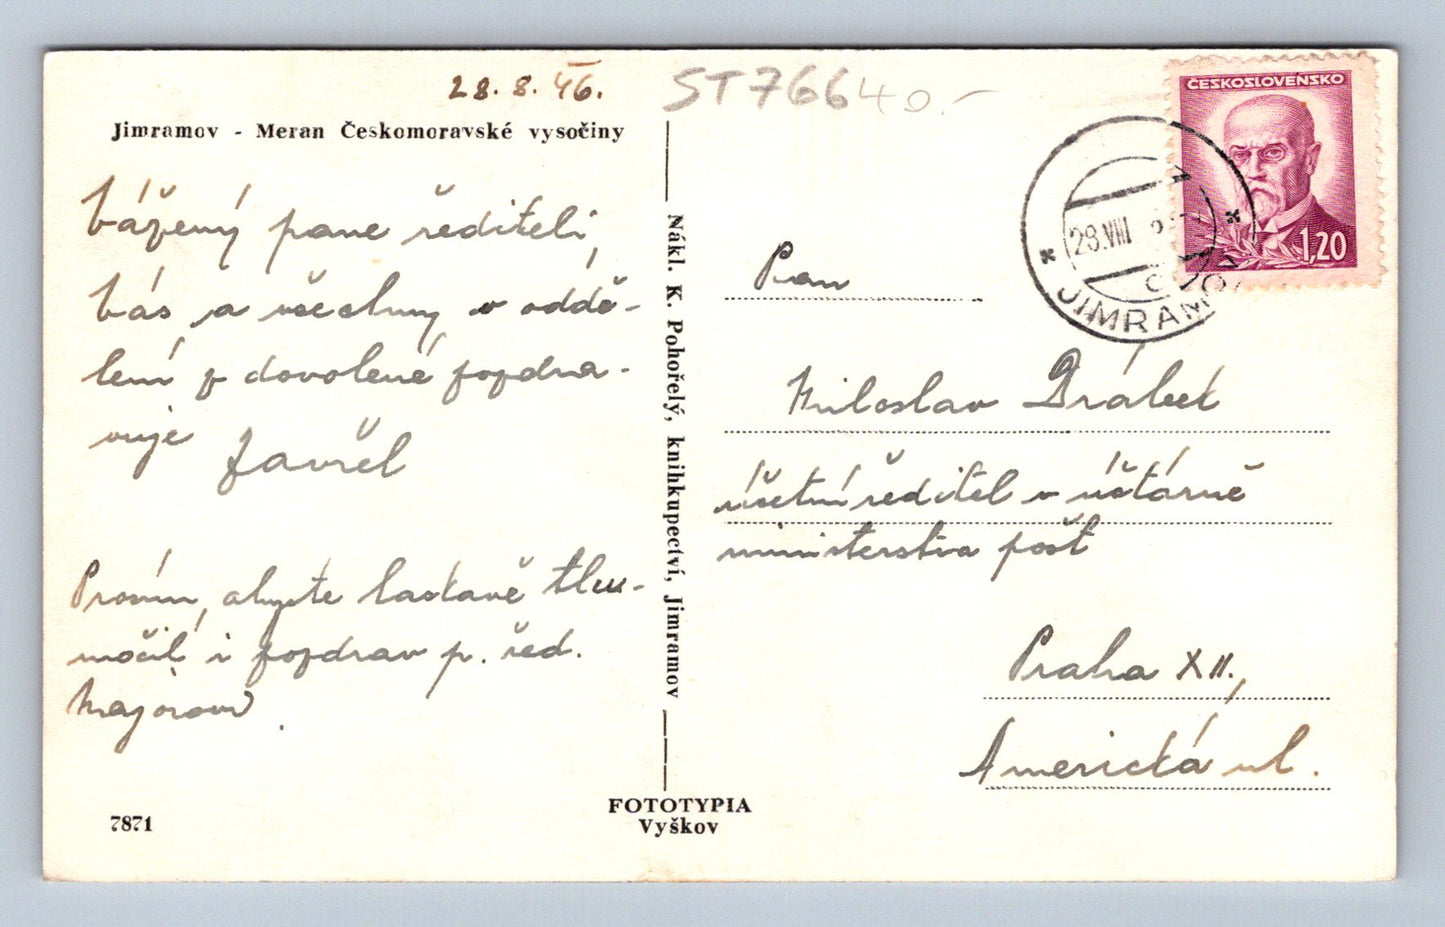 28. 8. 46.
ST766 40.-
Jimramov - Meran Českomoravské vysočiny
Vážený pane řediteli,
Vás a všechny v oddě-
lení z dovolené pozdra-
vuje Zavřel
Prosím, abyste laskavě tlu-
močil i pozdrav p. řed.
Majorovi.
7871
Nákl. K. Pohořelý, knihkupectví, Jimramov
FOTOTYPIA
Vyškov
ČESKOSLOVENSKO
1,20
28.VIII
JIMRAM
Pan
Miloslav Drábek
účetní ředitel v účtárně
ministerstva pošt
Praha XII.,
Americká ul.